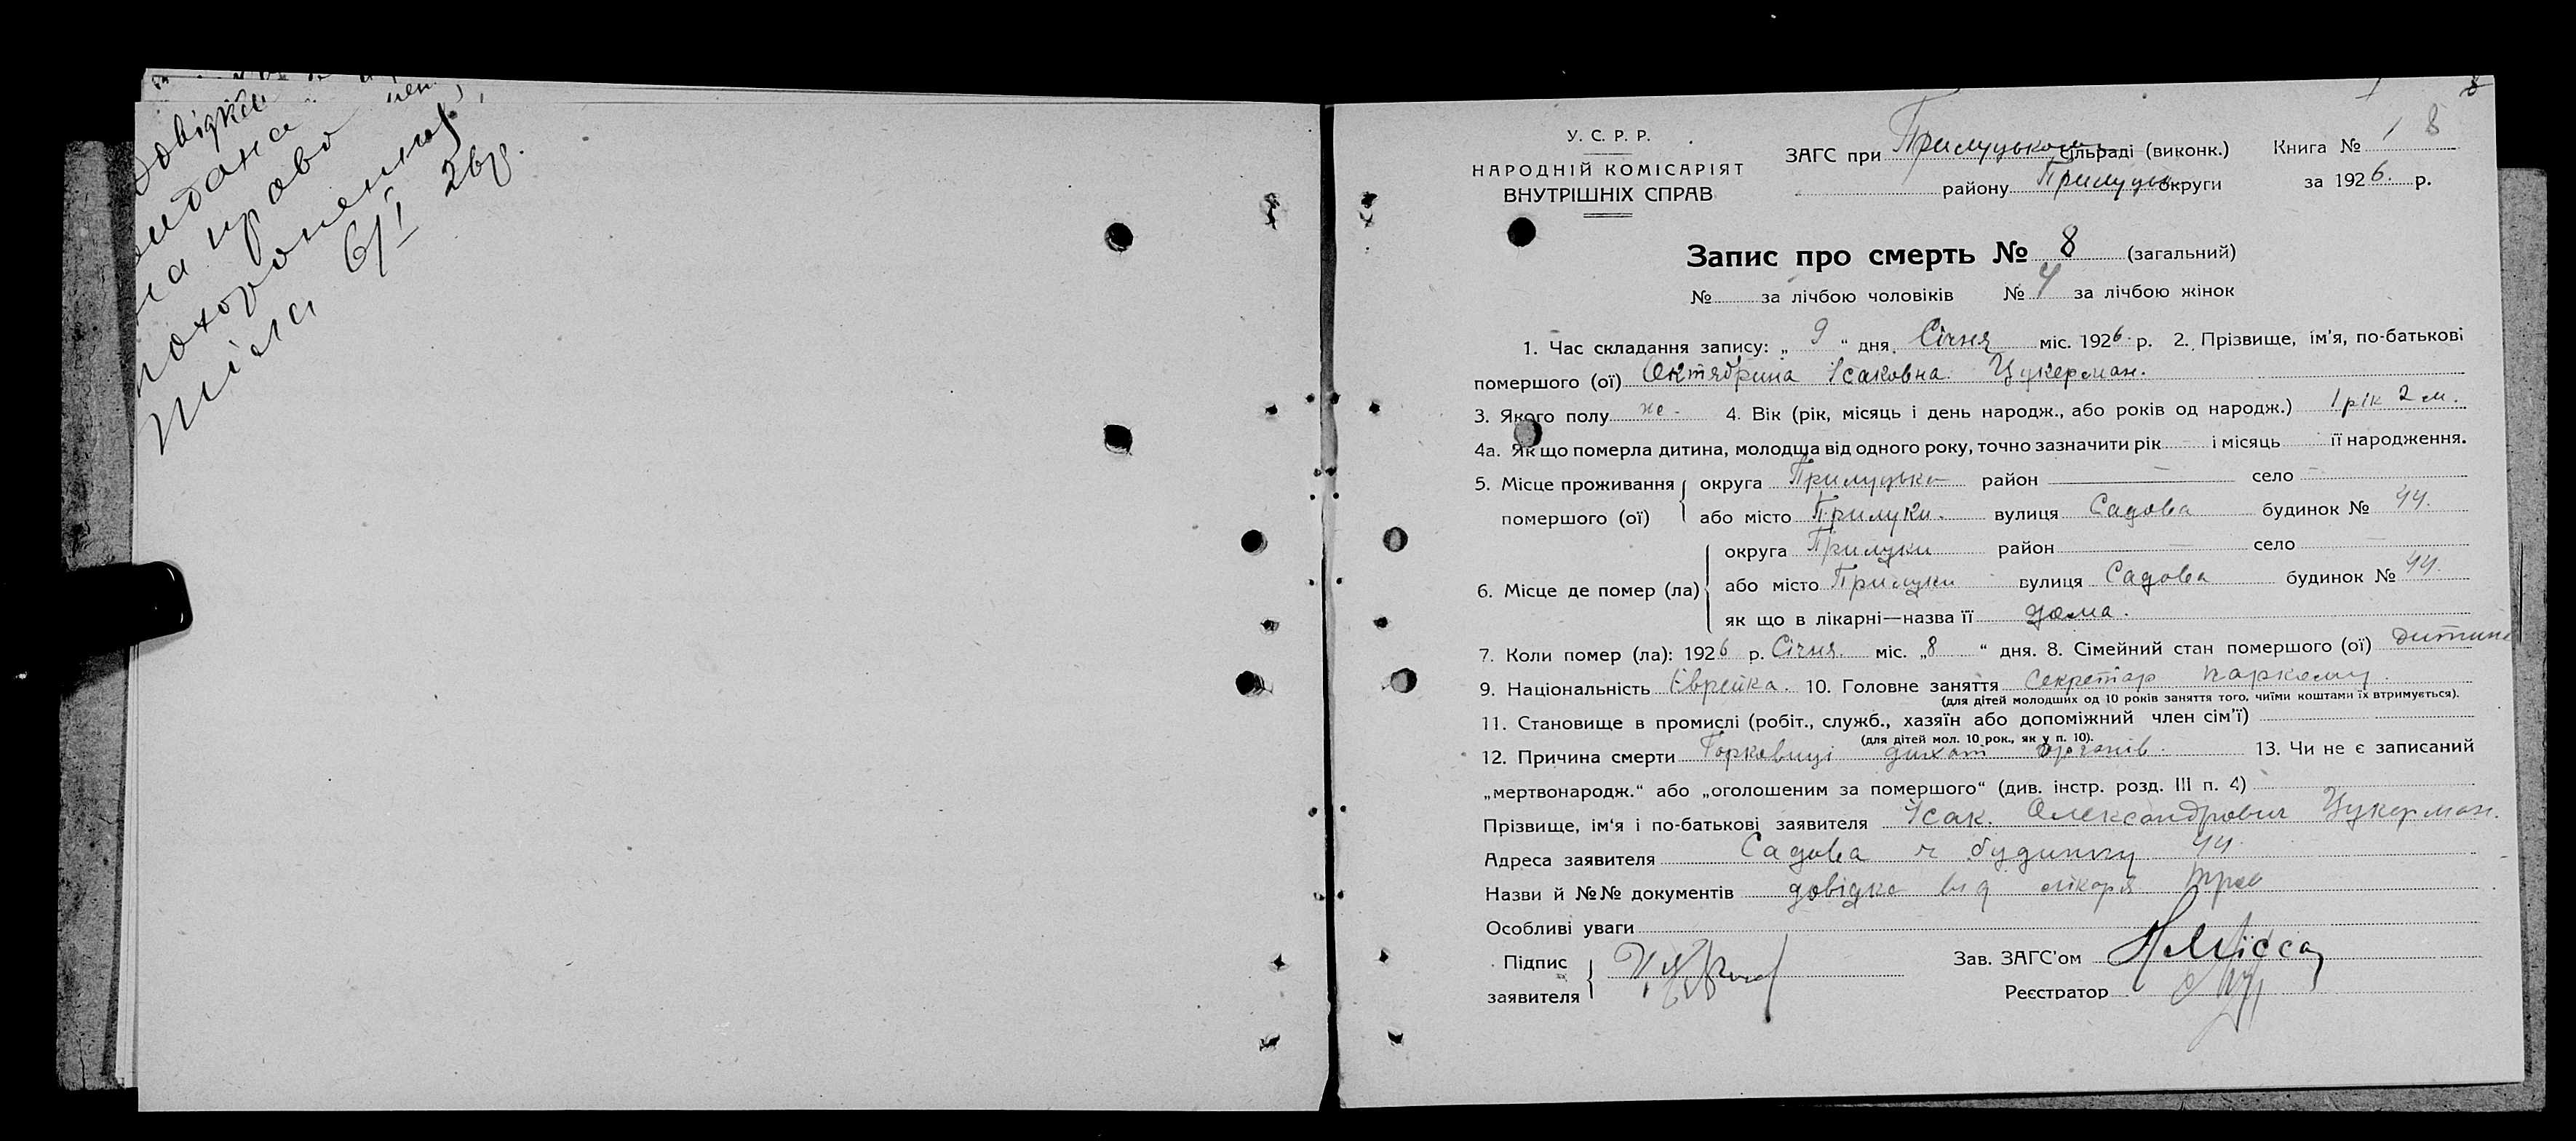 довідка
видана
на право
похоронення
тіла 6/I 26 р.
8
У. С. Р. Р.
НАРОДНІЙ КОМІСАРІЯТ
ВНУТРІШНІХ СПРАВ
ЗАГС при Прилуцькому сільраді (виконк.) Книга № 1 8
району Прилуцьк округи за 1926. р.
Запис про смерть № 8 (загальний)
№ за лічбою чоловіків № 4 за лічбою жінок
1. Час складання запису: „ 9 “ дня Січня міс. 1926 р. 2. Прізвище, ім'я, по-батькові
помершого (ої) Октябрина Ісаковна Цукерман.
3. Якого полу же. 4. Вік (рік, місяць і день народж., або років од народж.) 1 рік 2 м.
4а. Як що померла дитина, молодща від одного року, точно зазначити рік і місяць її народження.
5. Місце проживання округа Прилуцька район — село —
помершого (ої) або місто Прилуки. вулиця Садова будинок № 44.
округа Прилуки район — село —
6. Місце де помер (ла) або місто Прилуки вулиця Садова будинок № 44.
як що в лікарні—назва її дома.
7. Коли помер (ла): 1926 р. Січня міс. „8 “ дня. 8. Сімейний стан помершого (ої) дитина
9. Національність Єврейка. 10. Головне заняття Секретар парткому.
(для дітей молодших од 10 років заняття того, чиїми коштами їх втримується).
11. Становище в промислі (робіт., служб., хазяїн або допоміжний член сім'ї)
(для дітей мол. 10 рок., як у п. 10).
12. Причина смерти дихат органів. 13. Чи не є записаний
„мертвонародж.“ або „оголошеним за помершого“ (див. інстр. розд. III п. 4)
Прізвище, ім'я і по-батькові заявителя Ісак. Олександрович Цукерман.
Адреса заявителя Садова ч будинку 44.
Назви й №№ документів довідка від лікаря
Особливі уваги
Підпис
заявителя
Зав. ЗАГС'ом
Реєстратор